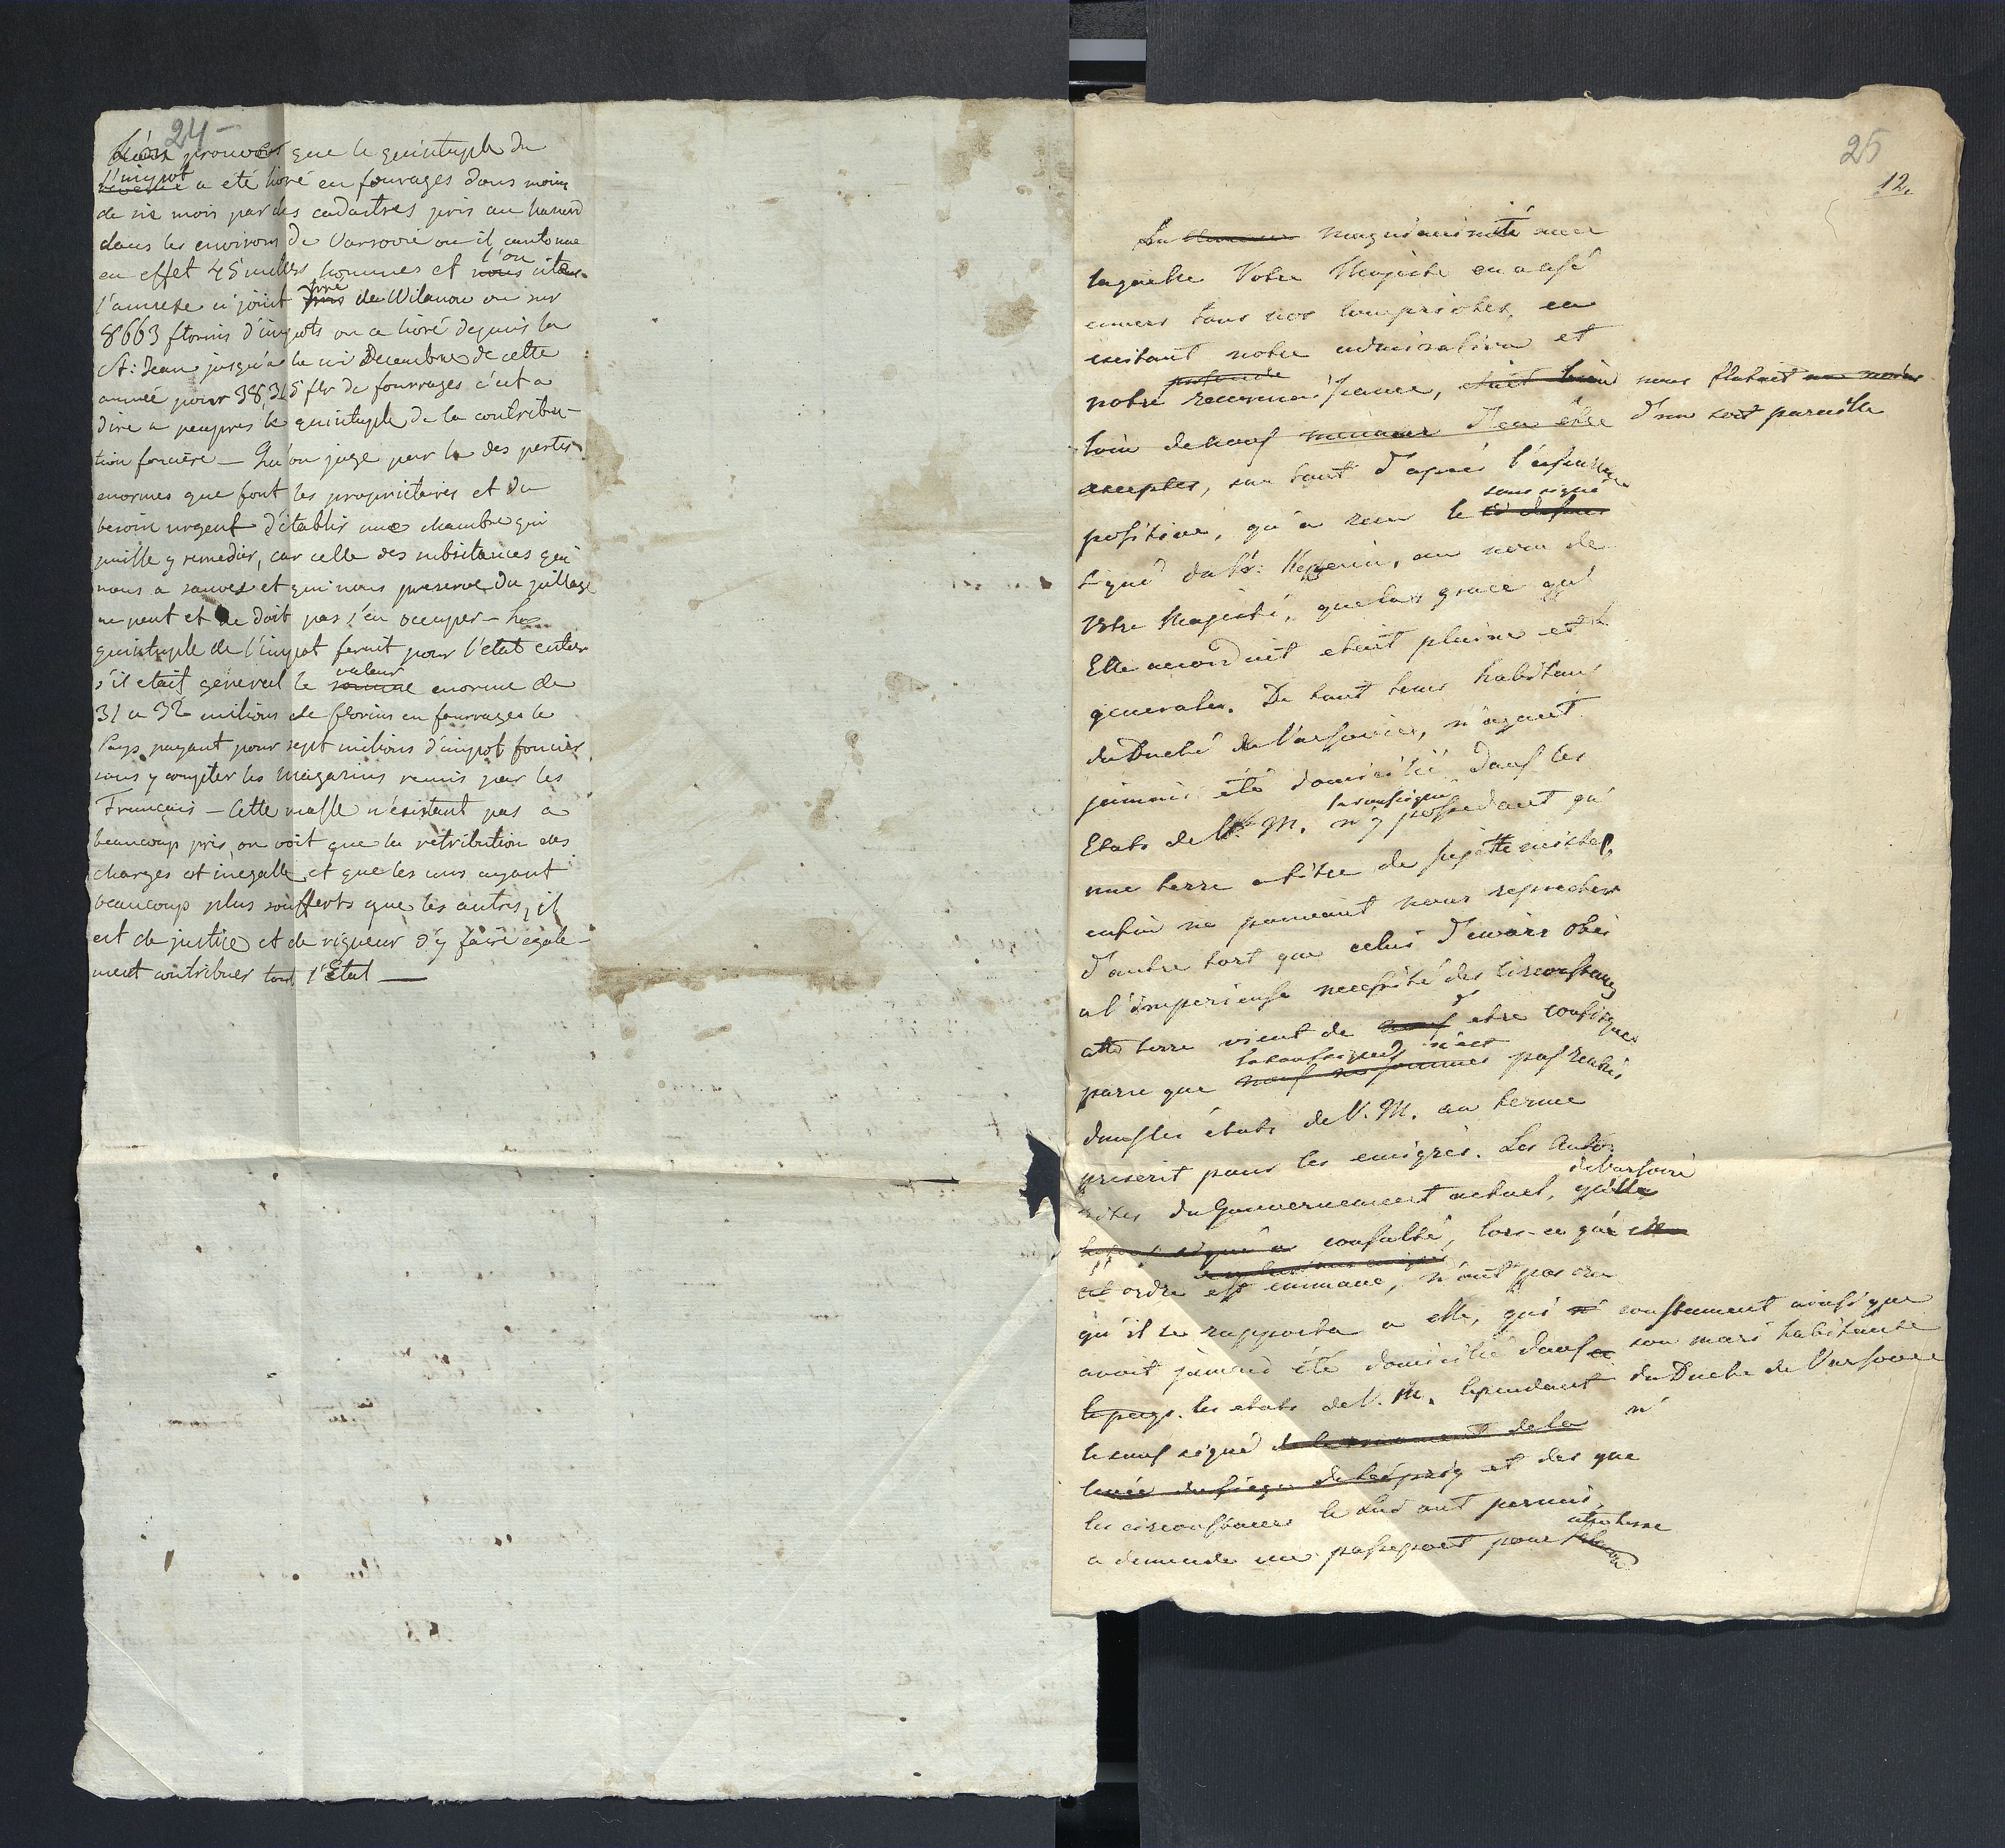 24
prouver que le quintuple du
l'impot
revenu a été livré en fourages dans moins
de six mois par des cadastres pris au hazard
dans les environs de Varsovie ou il cantonne
l'on
en effet 45 milles hommes et nous citons
livré
l'annexe ci joint de Wilanow ou sur
8663 florins d'impots on a livré depuis la
St: Jean jusqu'a la mi Decembre de cette
année pour 38,315 flr de fourrages c'est a
dire a peuprès le quintuple de la contribu-
tion foncière — Qu'on juge par la des pertes
enormes que font les proprietaires et du
besoin urgent d'établir une chambre qui
puisse y remedier, car celle des subsitances qui
nous a sauvés et qui nous preserve du pillage
ne peut et ne doit pas s'en occuper — Le
quintuple de l'impot feroit pour l'état entier
valeur
s'il etait géneral la somme enorme de
31 a 32 milions de florins en fourrages le
Pays payant pour sept milions d'impot foncier
sans y compter les Magasins remis par les
Français — Cette masse n'existant pas a
beaucoup près, on voit que la rétribution des
charges est inegalle et que les uns ayant
beaucoup plus soufferts que les autres, il
est de justice et de rigueur d'y faire egale-
ment contribuer tout l'Etat —
25
12.
La magnanimité avec
laquelle Votre Majesté en a usé
envers tous nos compatriotes, en
excitant notre admiration et
profonde
notre reconnaissance, était loin nous flatait
loin de nous menacer d'en être d'un sort pareille
exceptés, sur tout d'après l'assurance
sous signé
positive, qu'a reçu le
signé du Pr: Repnin, au nom de
Votre Majesté, que la grace qu'
Elle accordait etait pleine et
generale. De tout tems habitant
du Duché de Varsovie, n'ayant
jamais été domicilié dans les
la soussignée
Etats de V. M. n'y possedant qu'
une terre a titre de sujette mixte,
enfin ne pouvant nous reprocher
d'autre tort que celui d'avoir obéi
a l'imperieuse necessité des circonstances
cette terre vient de nous etre confisquée
la soussignée n'est
parce que nous ne sommes pas rentrés
dans les états de V. M. au terme
prescrit pour les emigrés. Les Auto-
de Varsovie
rités du Gouvernement actuel, qu'elle
consulté, lors-ce que
cet ordre est emmané, n'ont pas cru
qu'il se rapporta a elle, qui n' constament ainsi que
avoit jamais été domicilié dans son mari habitante
le pays. les etats de V. M. Cependant du Duché de Varsovie
le sous signé des le moment de la n'
levée du siege de et des que
les circonstances le lui ont permis,
cette terre
a demandé un passeport pour